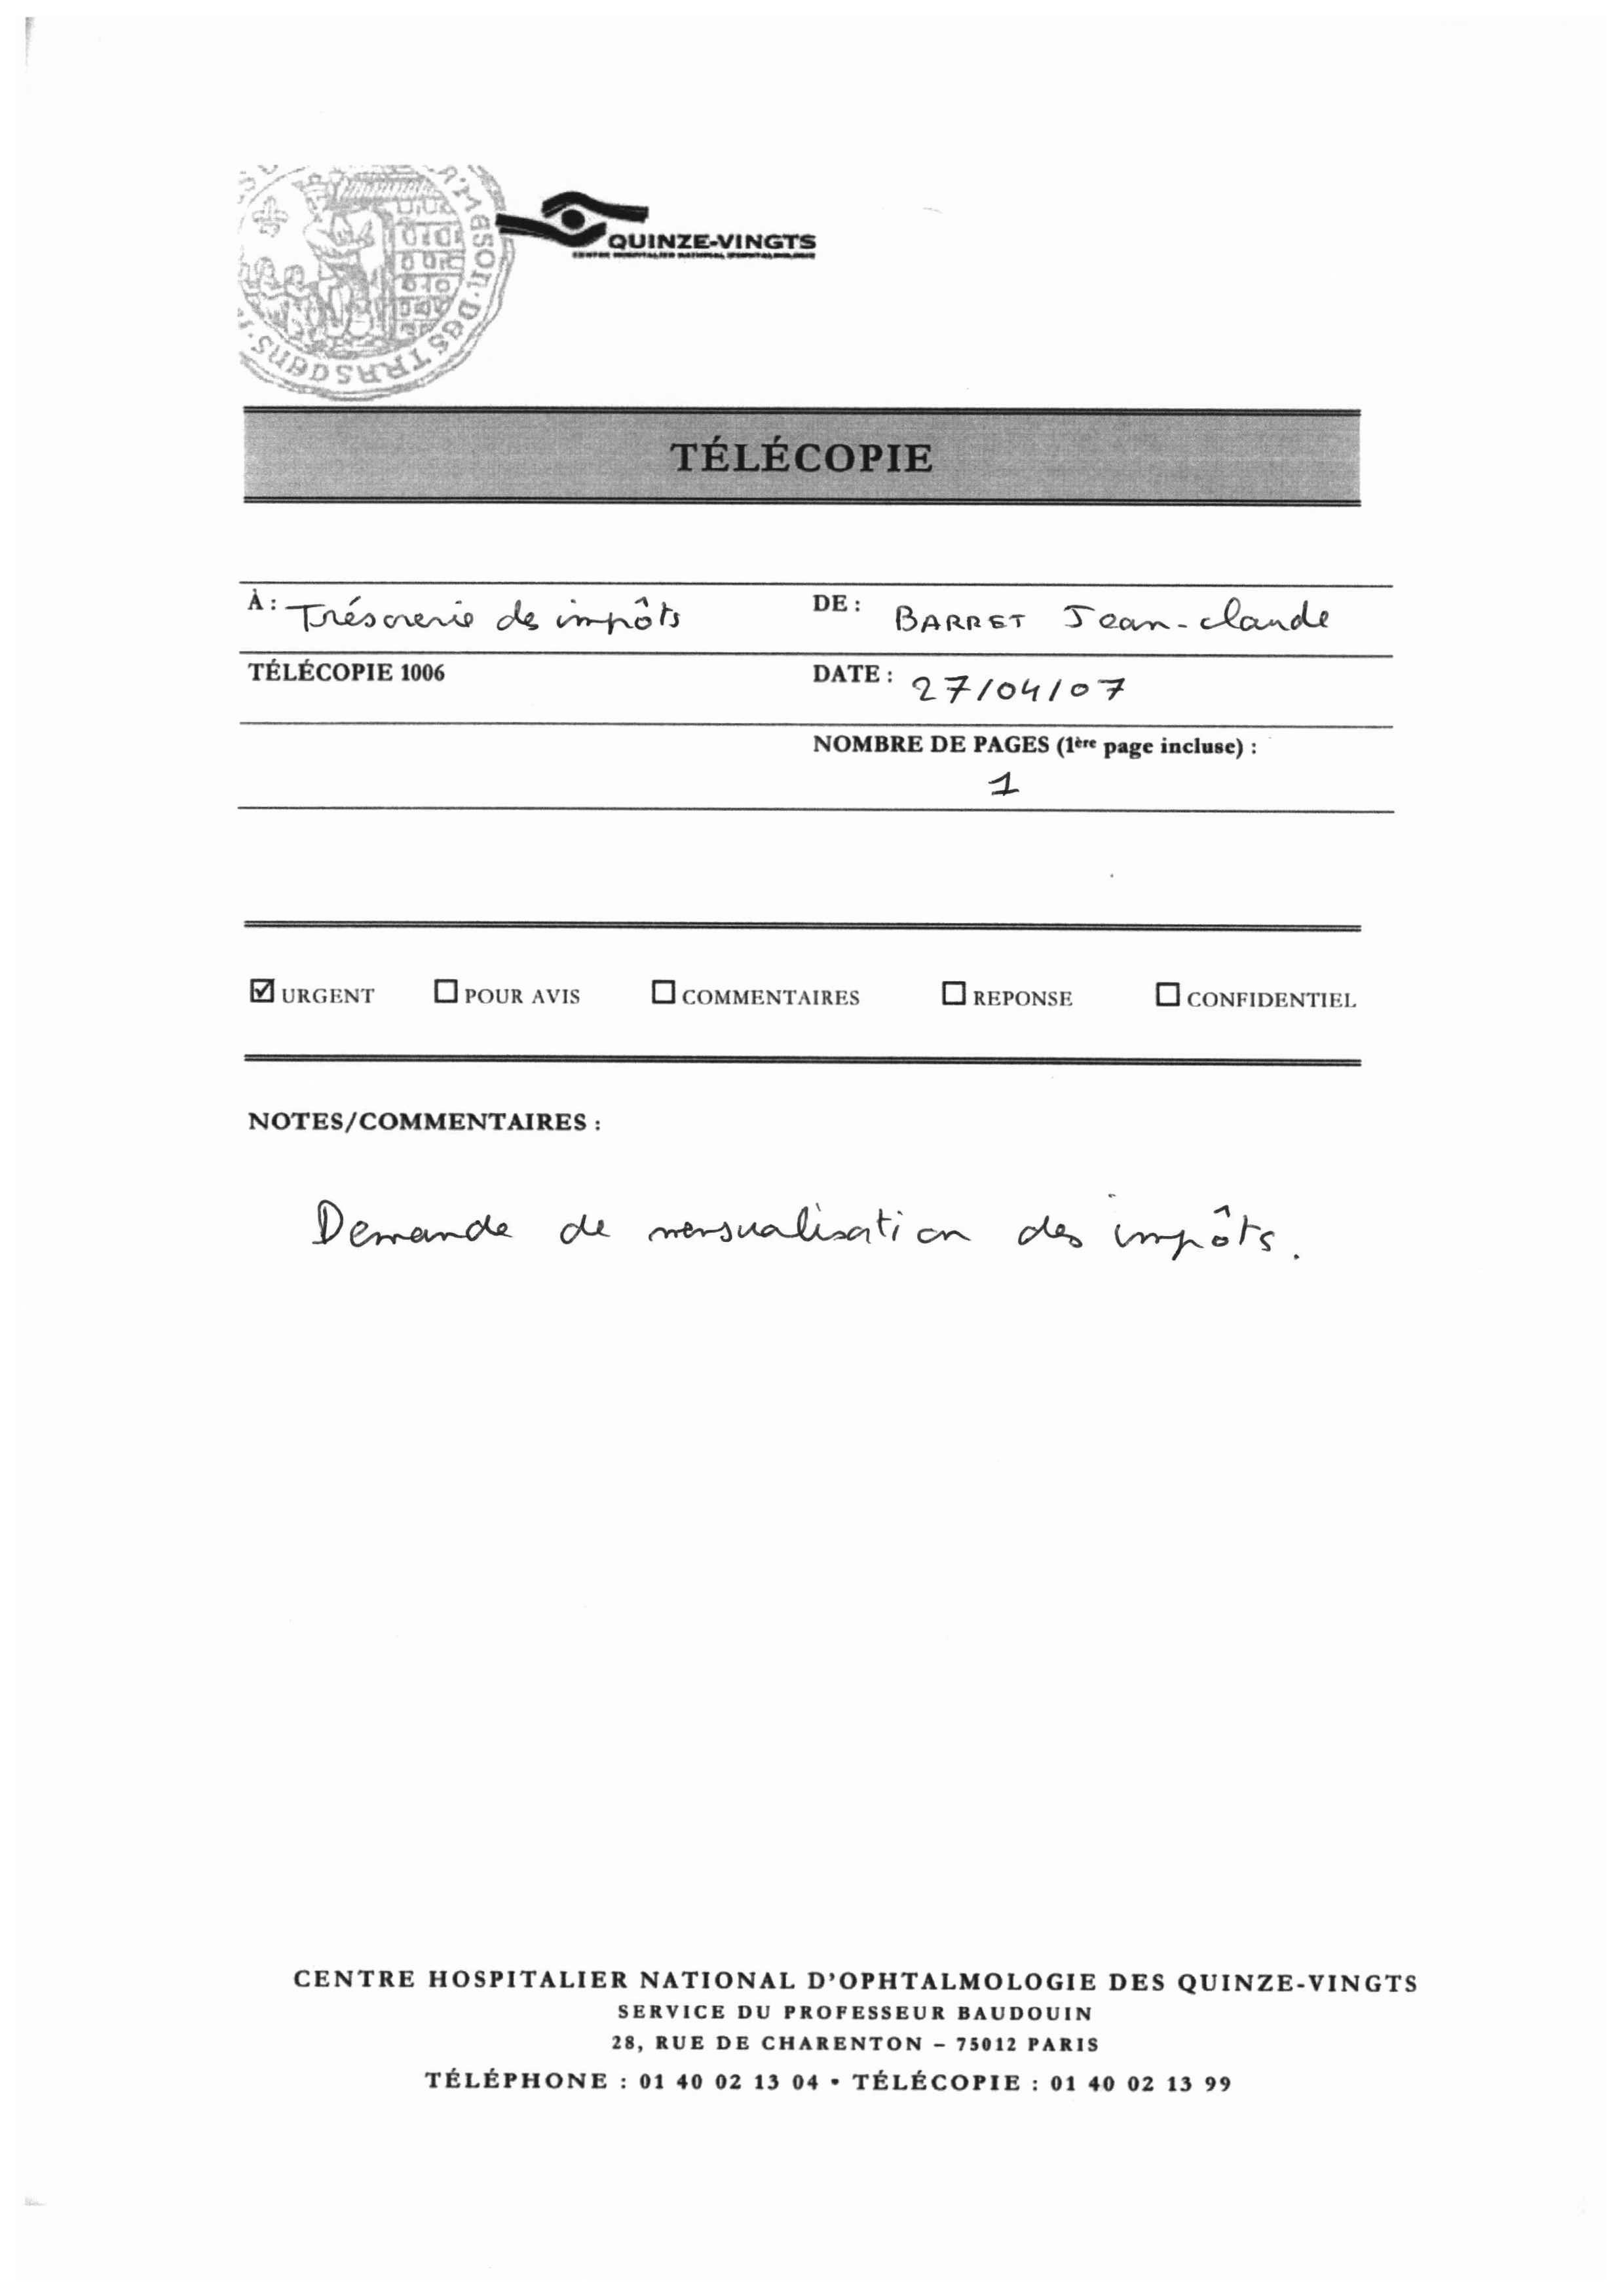 QUINZE-VINGTS
CENTRE HOSPITALIER NATIONAL D'OPHTALMOLOGIE
TÉLÉCOPIE
À : Trésorerie des impôts
DE : BARRET Jean-claude
TÉLÉCOPIE 1006
DATE : 27/04/07
NOMBRE DE PAGES (1ère page incluse) :
1
☑ URGENT ☐ POUR AVIS ☐ COMMENTAIRES ☐ REPONSE ☐ CONFIDENTIEL
NOTES/COMMENTAIRES :
Demande de mensualisation des impôts.
CENTRE HOSPITALIER NATIONAL D'OPHTALMOLOGIE DES QUINZE-VINGTS
SERVICE DU PROFESSEUR BAUDOUIN
28, RUE DE CHARENTON – 75012 PARIS
TÉLÉPHONE : 01 40 02 13 04 • TÉLÉCOPIE : 01 40 02 13 99